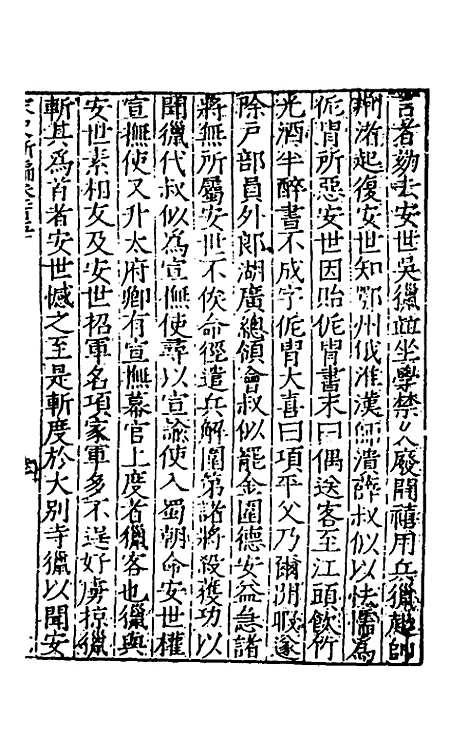 言者劾去安世吳獵並坐學禁久廢開禧用兵獵起帥
荊渚起復安世知鄂州俄淮漢師潰薛叔似以怯懦為
侂胄所惡安世因貽侂胄書末曰偶送客至江頭飲竹
光酒半醉書不成字侂胄大喜曰項平父乃爾閒暇遂
除戶部員外郎湖廣總領會叔似罷金圍德安益急諸
將無所屬安世不俟命徑遣兵解圍第諸將殺獲功以
聞獵代叔似為宣撫使尋以宣諭使入蜀朝命安世權
宣撫使又升太府卿有宣撫幕官上度者獵客也獵與
安世素相友及安世招軍名項家軍多不逞好虜掠獵
斬其為首者安世憾之至是斬度於大別寺獵以聞安